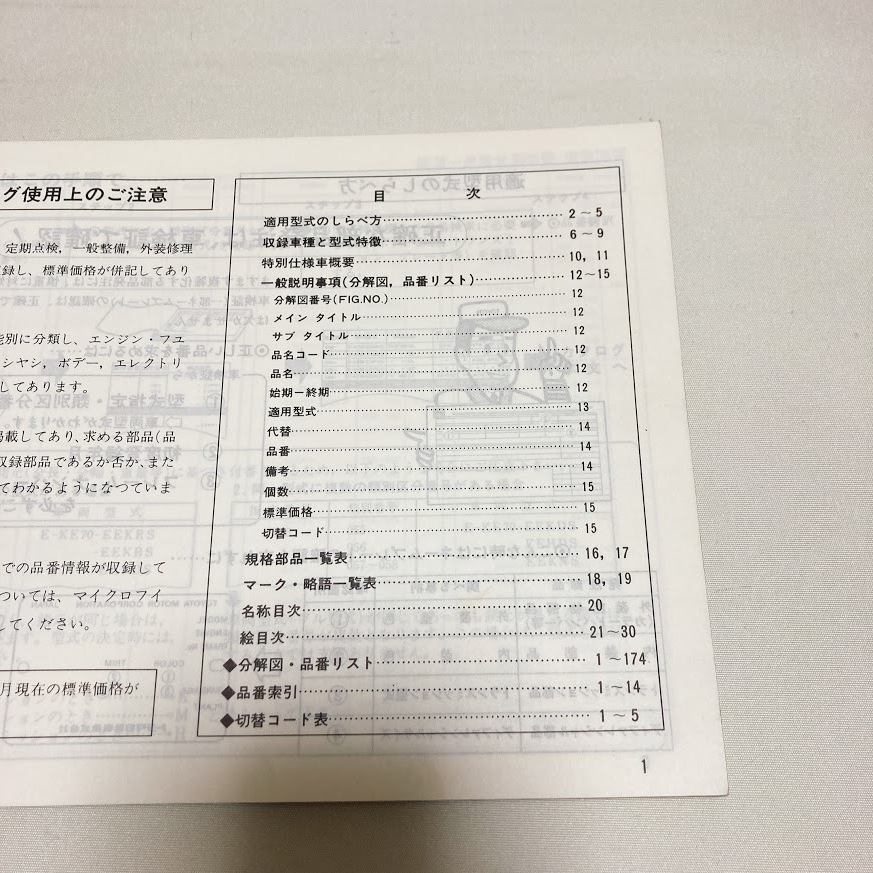 グ使用上のご注意
定期点検，一般整備，外装修理
録し、標準価格が併記してあり
能別に分類し、エンジン・フユ
シヤシ，ボデー，エレクトリ
してあります。
掲載してあり、求める部品(品
収録部品であるか否か、また
てわかるようになつていま
での品番情報が収録して
ついては、マイクロフイ
てください。
月現在の標準価格が
目 次
適用型式のしらべ方 2～5
収録車種と型式特徴 6～9
特別仕様車概要 10，11
一般説明事項(分解図，品番リスト) 12～15
分解図番号(FIG.NO.) 12
メイン タイトル 12
サブ タイトル 12
品名コード 12
品名 12
始期－終期 12
適用型式 13
代替 14
品番 14
備考 14
個数 15
標準価格 15
切替コード 15
規格部品一覧表 16，17
マーク・略語一覧表 18，19
名称目次 20
絵目次 21～30
◆分解図・品番リスト 1～174
◆品番索引 1～14
◆切替コード表 1～5
1